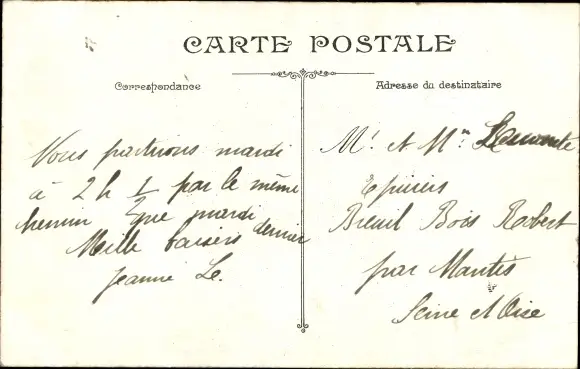 CARTE POSTALE
Correspondance
Adresse du destinataire
Vous partirons mardi
à 2 h 1/2 par le même
chemin que mardi dernier
Mille baisers
Jeanne Le.
Mr. et Mme
Epiciers
Breuil Bois Robert
par Mantes
Seine et Oise